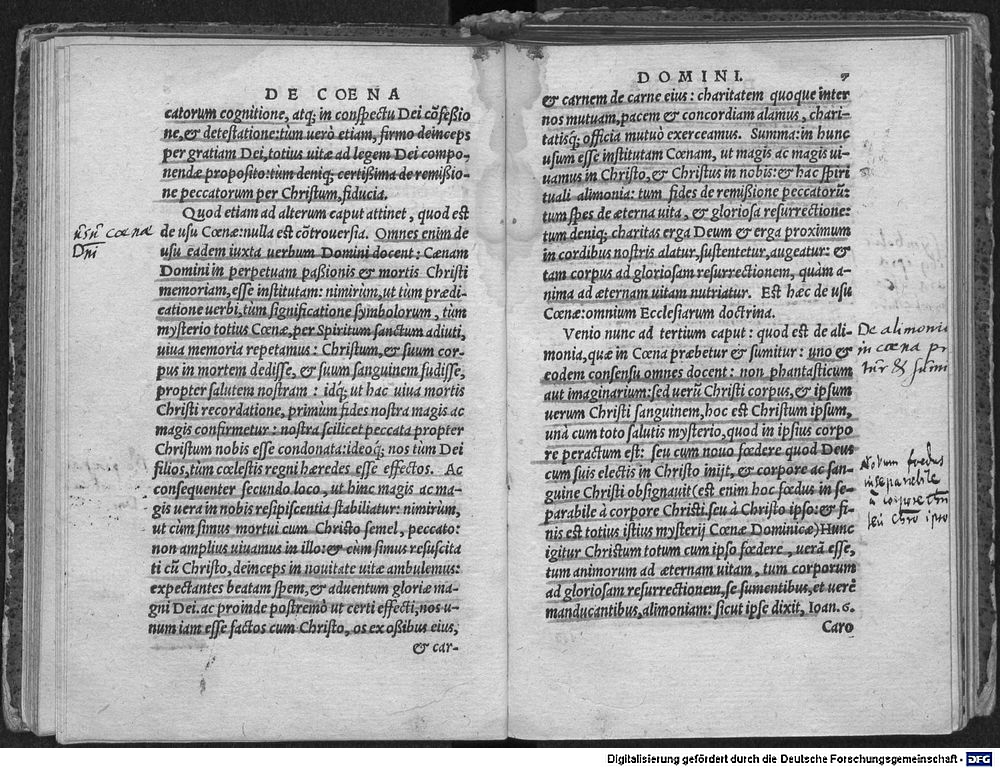 DE COENA
catorum cognitione, atq; in conspectu Dei cõfeßio
ne, & detestatione: tùm uerò etiam, firmo deinceps
per gratiam Dei, totius uitæ ad legem Dei compo-
nendæ proposito: tùm deniq; certißima de remißio-
ne peccatorum per Christum, fiducia.
Quod etiam ad alterum caput attinet, quod est
de usu Cœnæ: nulla est cõtrouersia. Omnes enim de
usu eadem iuxta uerbum Domini docent: Cœnam
Domini in perpetuam paßionis & mortis Christi
memoriam, esse institutam: nimirùm, ut tùm prædi-
catione uerbi, tùm significatione symbolorum, tùm
mysterio totius Cœnæ, per Spiritum sanctum adiuti,
uiua memoria repetamus: Christum, & suum cor-
pus in mortem dedisse, & suum sanguinem fudisse,
propter salutem nostram: idq; ut hac uiua mortis
Christi recordatione, primùm fides nostra magis ac
magis confirmetur: nostra scilicet peccata propter
Christum nobis esse condonata: ideoq; nos tùm Dei
filios, tùm cœlestis regni hæredes esse effectos. Ac
consequenter secundo loco, ut hinc magis ac ma-
gis uera in nobis resipiscentia stabiliatur: nimirùm,
ut cùm simus mortui cum Christo semel, peccato:
non amplius uiuamus in illo: & cùm simus resuscita
ti cũ Christo, deinceps in nouitate uitæ ambulemus:
expectantes beatam spem, & aduentum gloriæ ma-
gni Dei. ac proinde postremò ut certi effecti, nos u-
num iam esse factos cum Christo, os ex oßibus eius,
& car-
usũ cœnæ
Dni
DOMINI.
& carnem de carne eius: charitatem quoque inter
nos mutuam, pacem & concordiam alamus, chari-
tatisq; officia mutuò exerceamus. Summa: in hunc
usum esse institutam Cœnam, ut magis ac magis ui-
uamus in Christo, & Christus in nobis: & hac spiri
tuali alimonia: tum fides de remißione peccatorũ:
tum spes de æterna uita, & gloriosa resurrectione:
tum deniq; charitas erga Deum & erga proximum
in cordibus nostris alatur, sustentetur, augeatur: &
tam corpus ad gloriosam resurrectionem, quàm a-
nima ad æternam uitam nutriatur. Est hæc de usu
Cœnæ: omnium Ecclesiarum doctrina.
Venio nunc ad tertium caput: quod est de ali-
monia, quæ in Cœna præbetur & sumitur: uno &
eodem consensu omnes docent: non phantasticum
aut imaginarium: sed uerũ Christi corpus, & ipsum
uerum Christi sanguinem, hoc est Christum ipsum,
unà cum toto salutis mysterio, quod in ipsius corpo
re peractum est: seu cum nouo fœdere quod Deus
cum suis electis in Christo inijt, & corpore ac san-
guine Christi obsignauit (est enim hoc fœdus in se-
parabile à corpore Christi seu à Christo ipso: & fi-
nis est totius istius mysterij Cœnæ Dominicæ) Hunc
igitur Christum totum cum ipso fœdere, uerã esse,
tum animorum ad æternam uitam, tum corporum
ad gloriosam resurrectionem, se sumentibus, et uerè
manducantibus, alimoniam: sicut ipse dixit, Ioan. 6.
Caro
De alimoni
in cœna pr
&
Novum fœdus
inseparabile
à corpore
seu Chro ipso
Digitalisierung gefördert durch die Deutsche Forschungsgemeinschaft - DFG